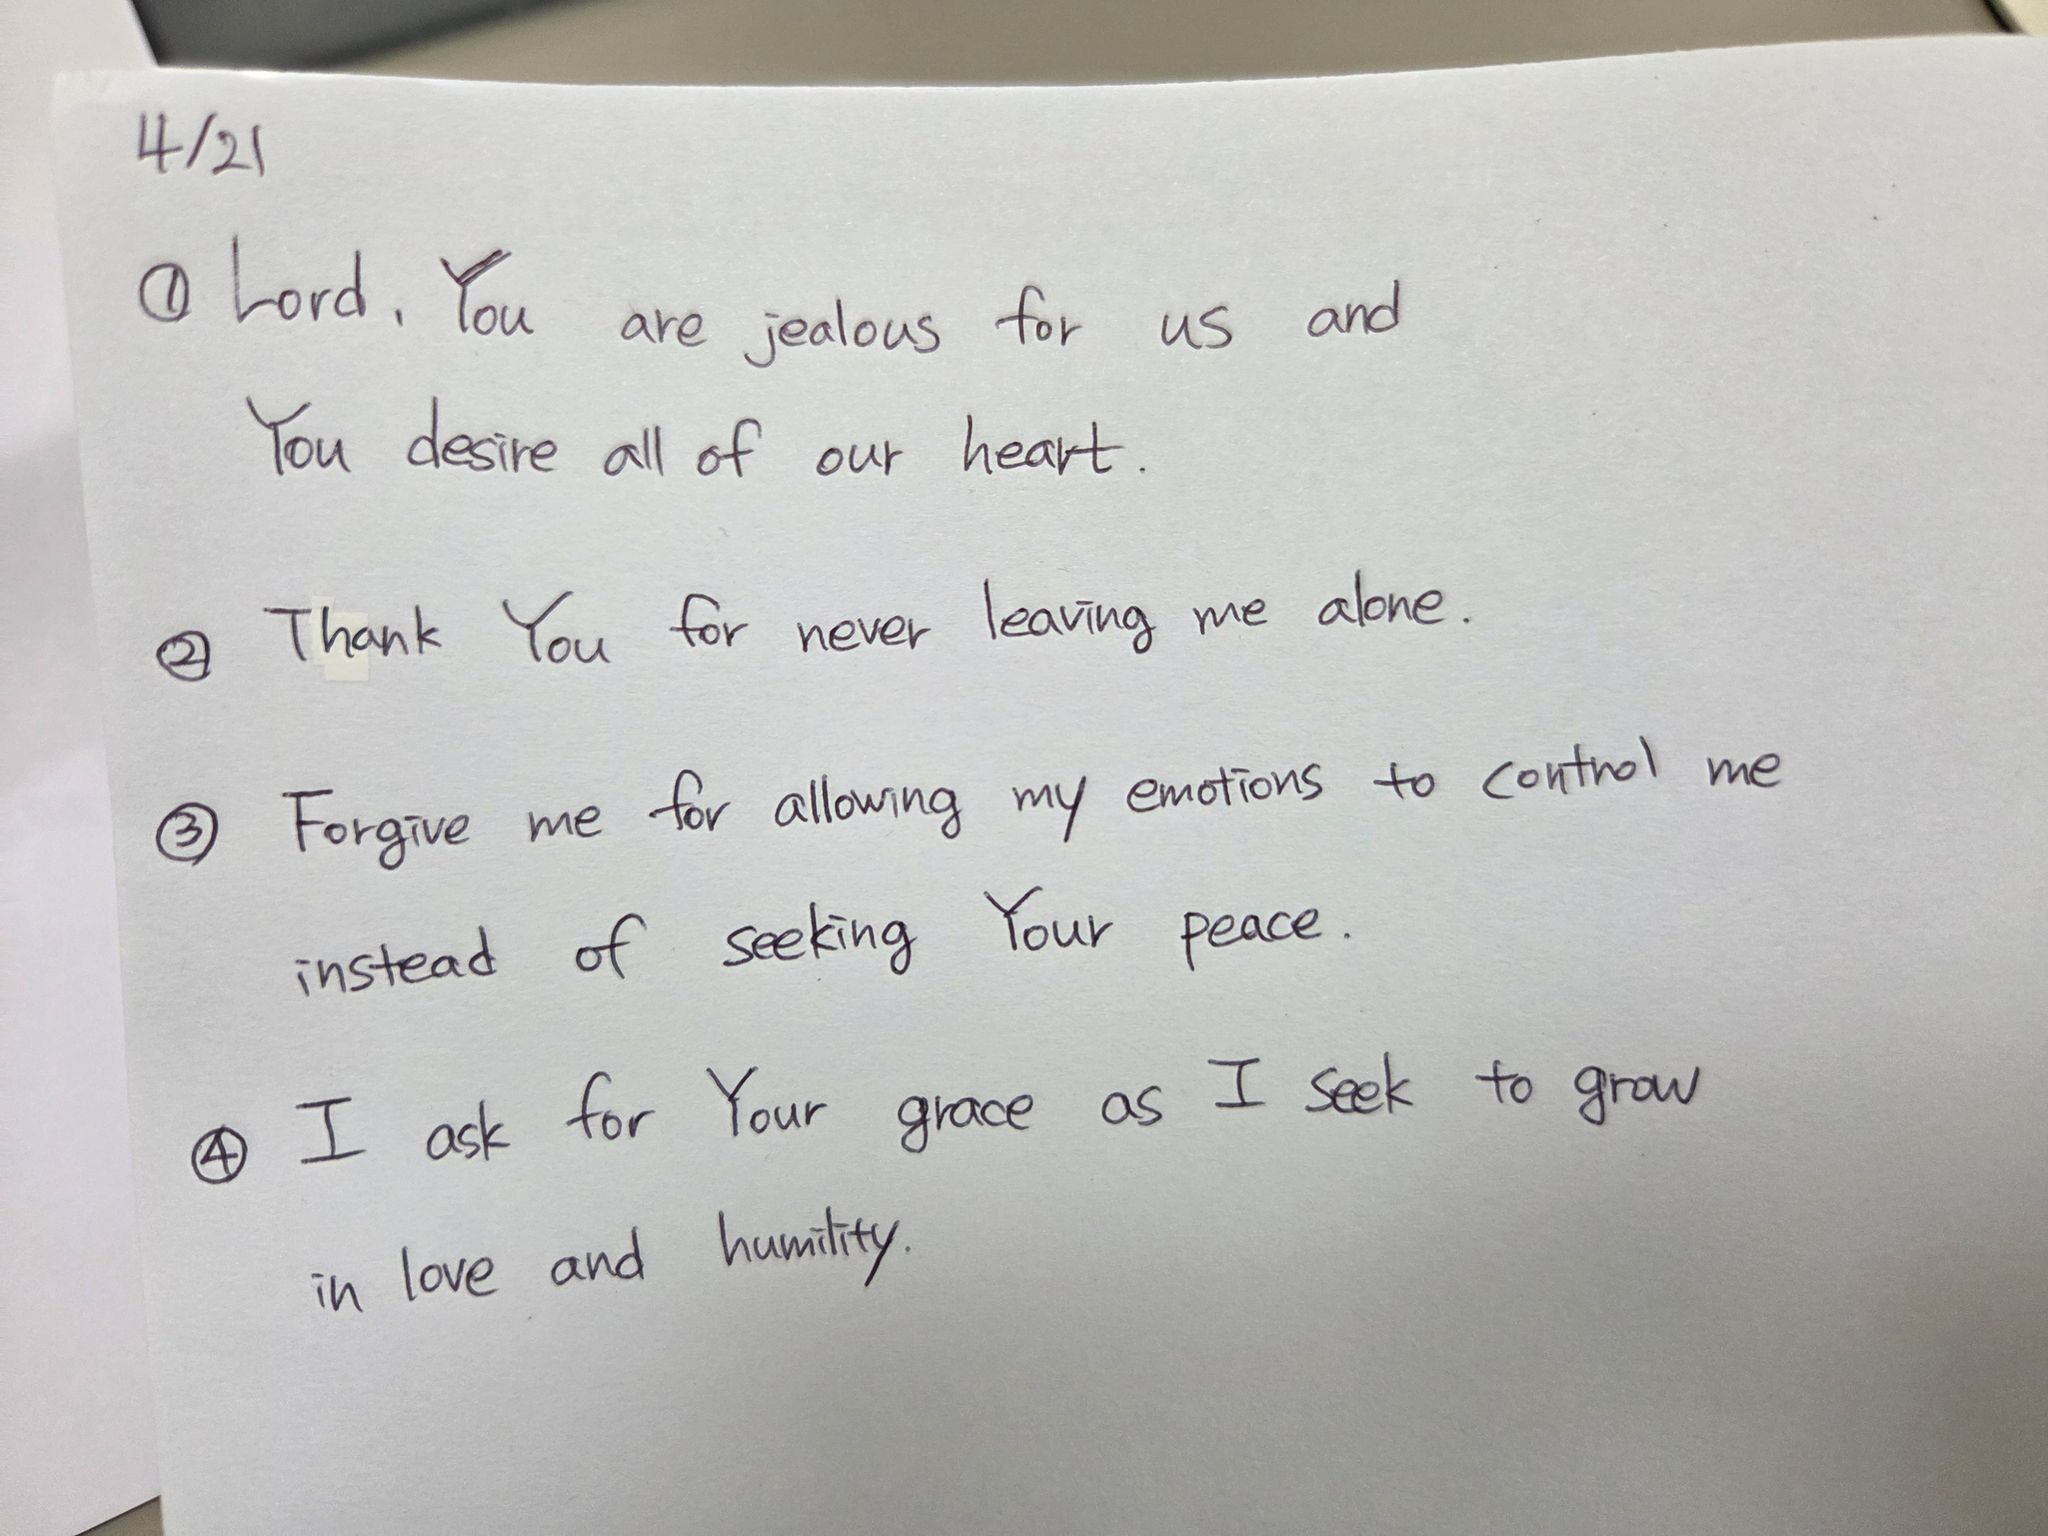 4/21
① Lord, You are jealous for us and
You desire all of our heart.
② Thank You for never leaving me alone.
③ Forgive me for allowing my emotions to control me
instead of seeking Your peace.
④ I ask for Your grace as I seek to grow
in love and humility.